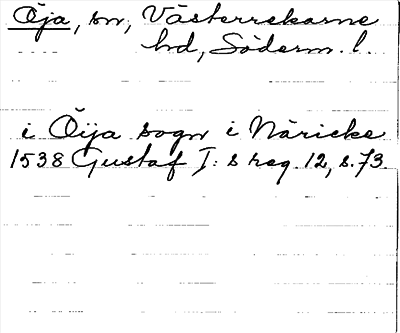 Öja, sn, Västerrekarne
hd, Söderm. l.
i Öija sogn i Näricke
1538 Gustaf I: s reg. 12, s. 73.